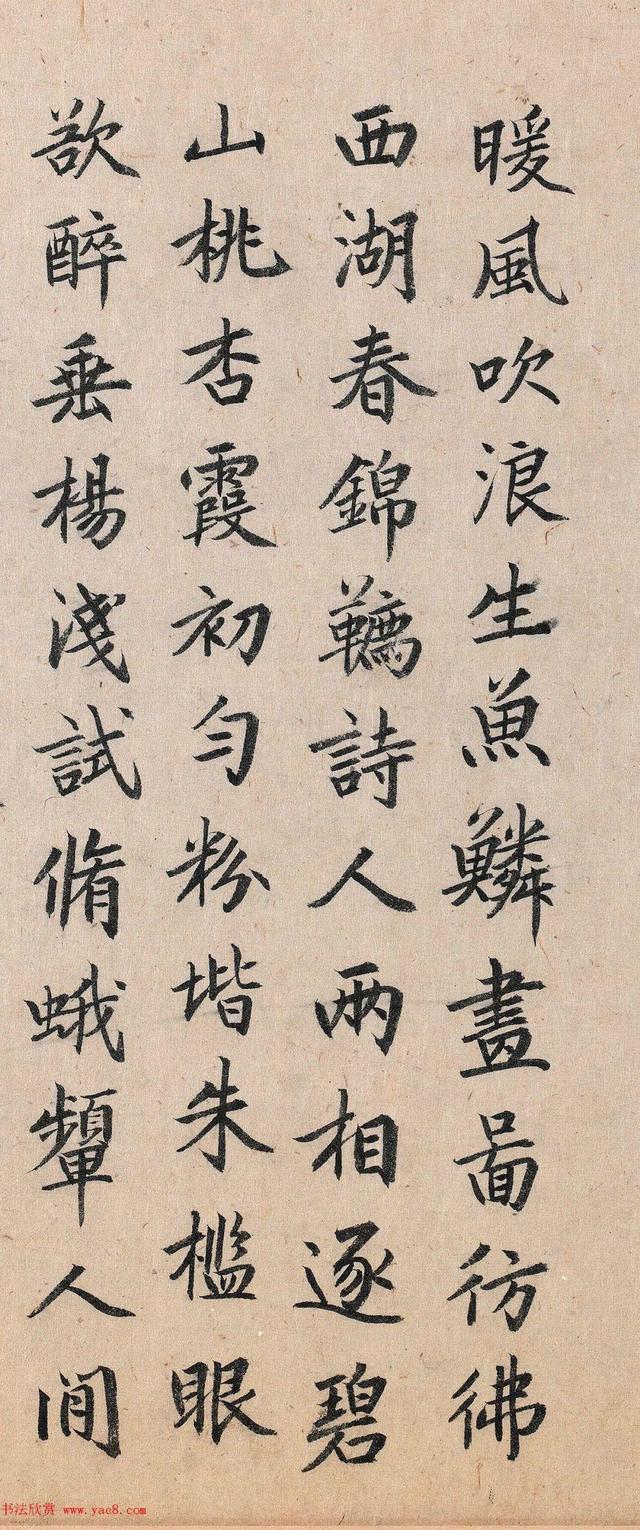 暖風吹浪生魚鱗畫啚彷彿
西湖春錦韉詩人兩相逐碧
山桃杏霞初勻粉堦朱檻眼
欲醉垂楊淺試脩蛾顰人間
书法欣赏 www.yac8.com